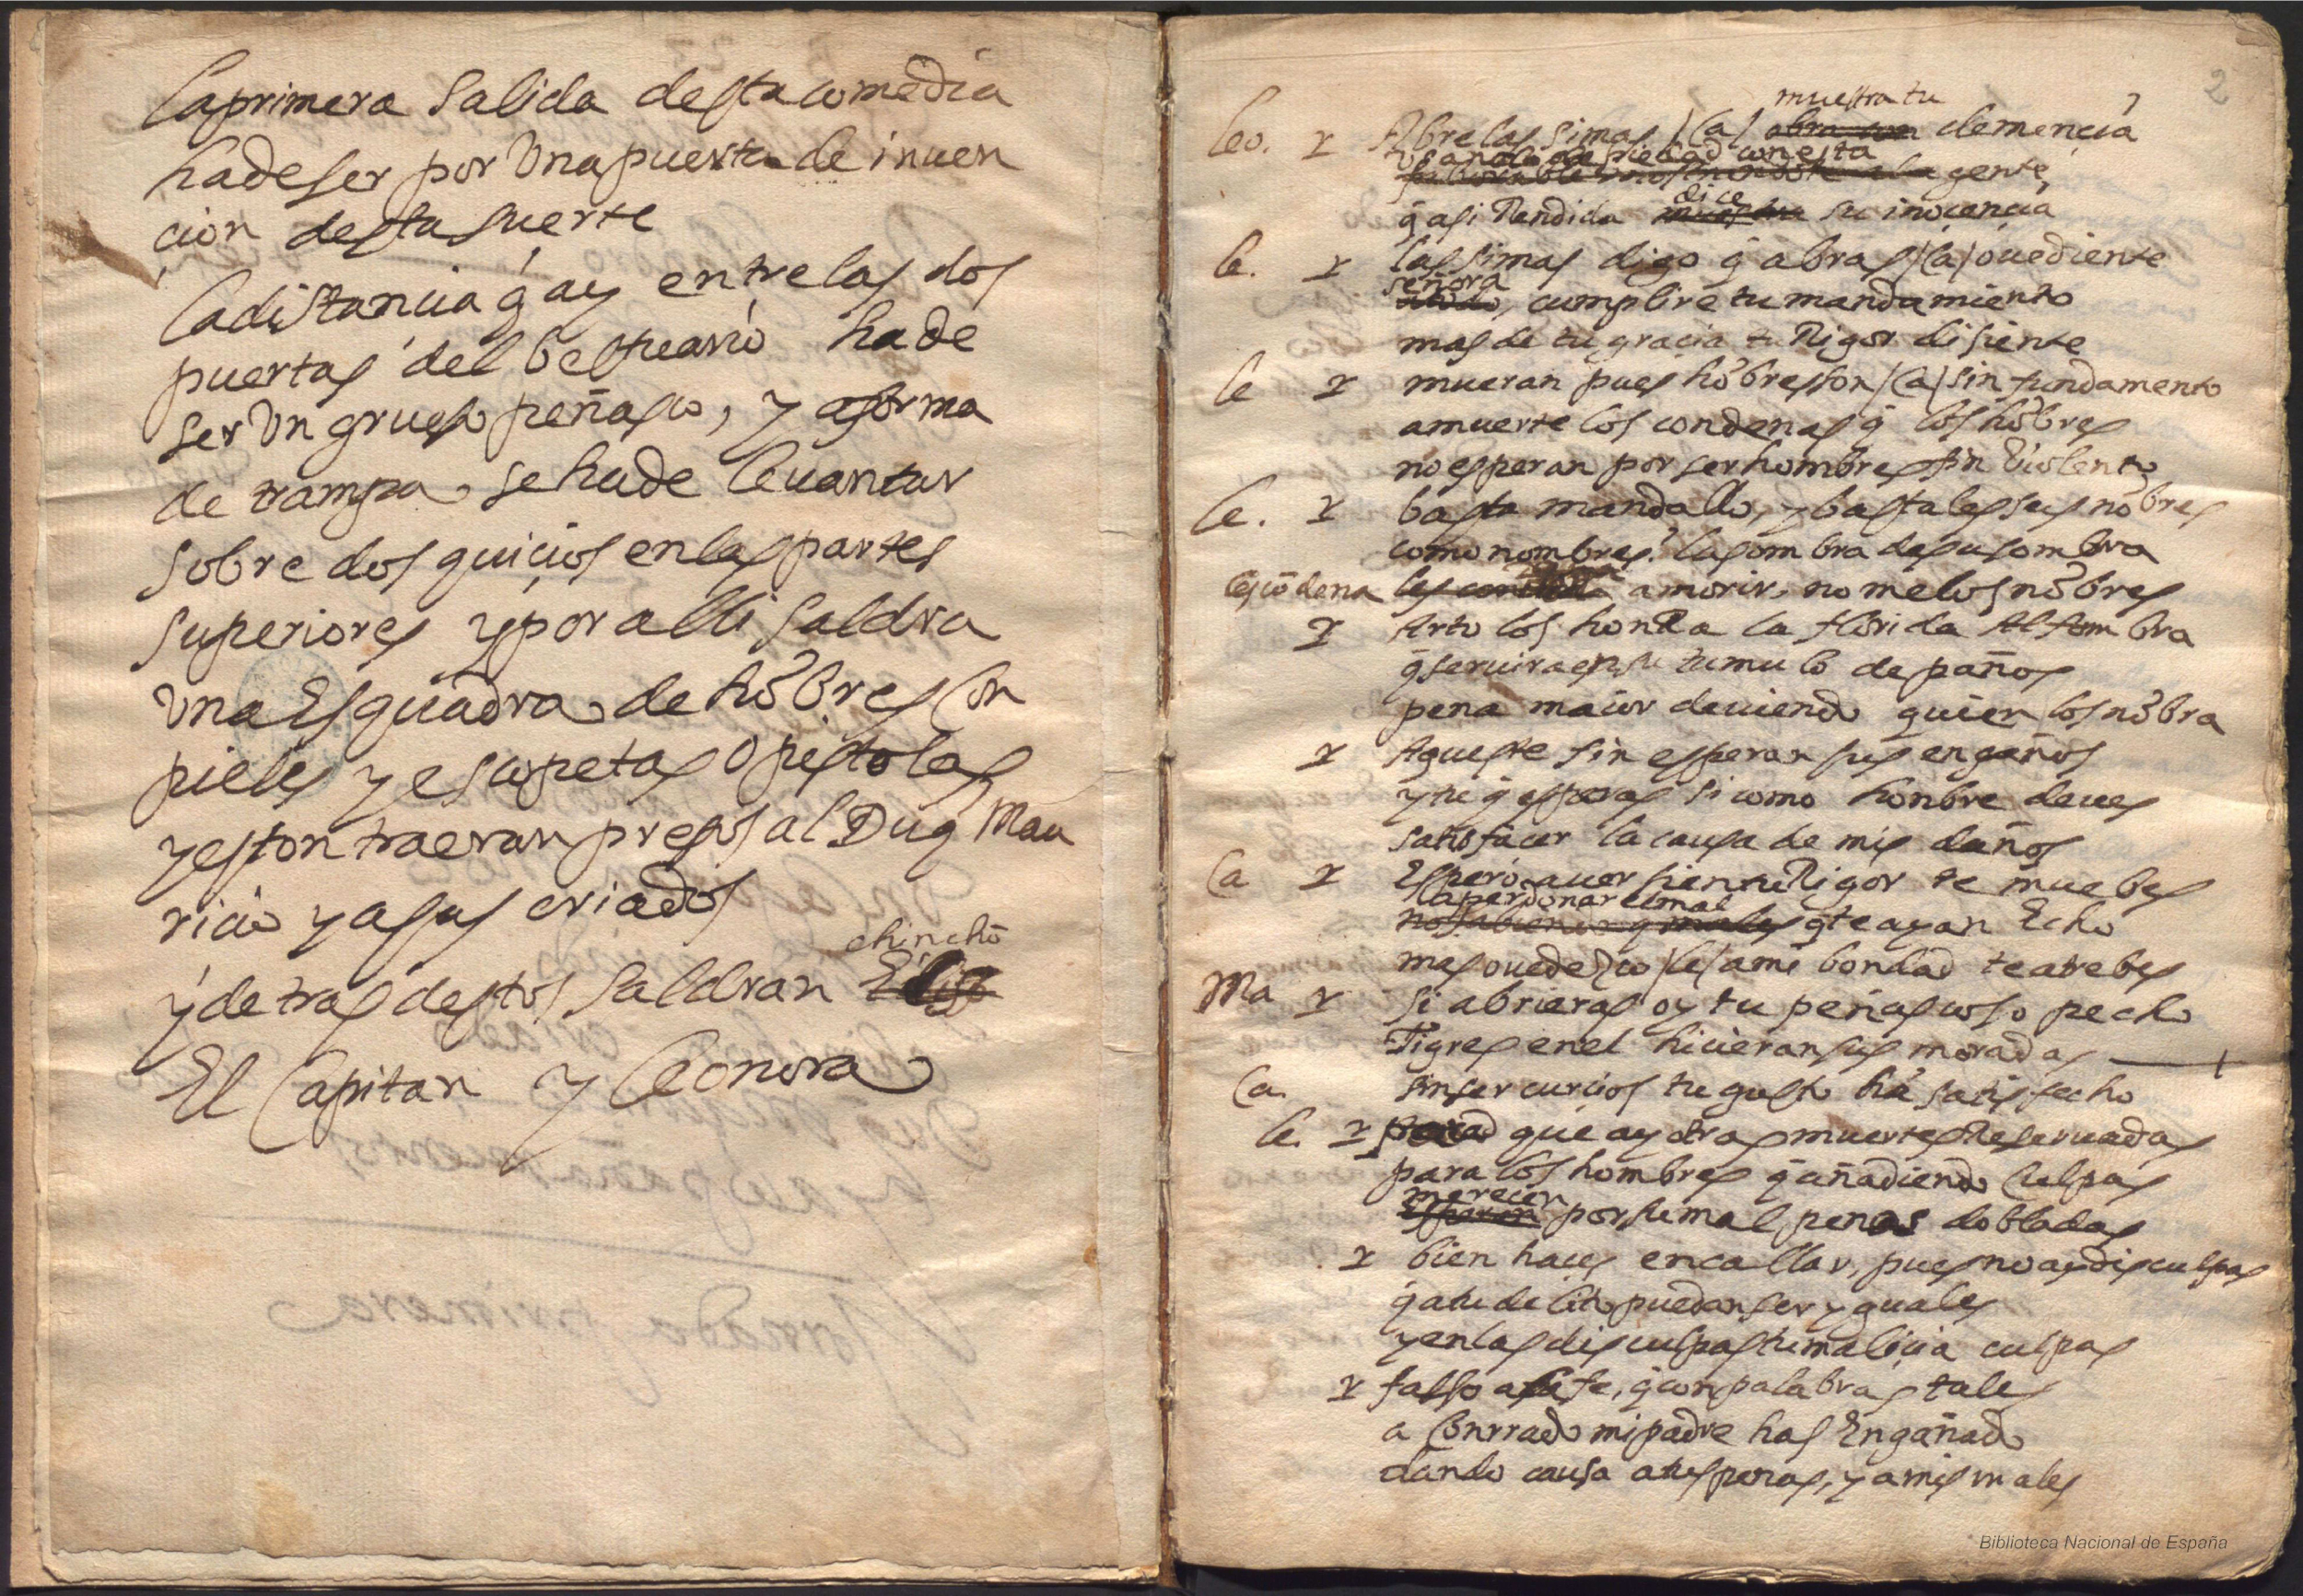 la primera salida desta comedia
ha de ser por Una puerta de inuen
cion desta suerte
la distancia q̄ ay entre las dos
puertas del bestuario ha de
ser Un grueso peñasco, y a forma
de trampa se ha de leuantar
sobre dos quicios en las partes
superiores y por alli saldra
Una Esquadra de hōbres con
pieles y escopetas o pistolas
y estos traeran presos al Duq̄ Mau
ricio y a sus criados
chinchō
y detras destos saldran
El Capitan y leonora
2
muestra tu
leo. Abre las simas /(ca)/ abra con clemencia
usando de piedad con esta
gente
dice
q̄ asi Rendida su inocencia
le. las simas digo q̄ abras /(ca)/ ouediente
señora
cumplire tu mandamiento
mas de tu gracia tu Rigor disiente
le mueran pues hōbres son /(ca)/ sin fundamento
a muerte los condenas q̄ los hōbres
no esperan por ser hombres fin Uiolento
le. basta mandallo, y bastales sus nōbres
como nombres? la sombra de su sombra
les cōdena a morir, no me los nōbres
Arto los honRa la florida Alfombra
q̄ seruira en su tumulo de paños
pena maior deuiendo quien los nōbra
Aqueste sin esperar sus engaños
y tu q̄ esperas si como honbre deues
satisfacer la causa de mis daños
Ca Espero a uer si en tu Rigor te muebes
a perdonar el mal
q̄ te ayan Echo
mas ouedezco /le/ a mi bondad te atrebes
Ma si abrieras oy tu peñascoso pecho
Tigres en el hicieran sus moradas
Ca. sin ser curcios tu gusto hā satisfecho
le. que ay otras muertes Reseruadas
para los hombres q̄ añadiendo culpas
merecen
Esperan por su mal penas dobladas
bien haces en callar, pues no ay disculpas
q̄ a tu delito puedan ser yguales
y en las disculpas tu malicia culpas
falso a fe, q̄ con palabras tales
a Conrrado mi padre has Engañado
dando causa a tus penas, y a mis males
Biblioteca Nacional de España